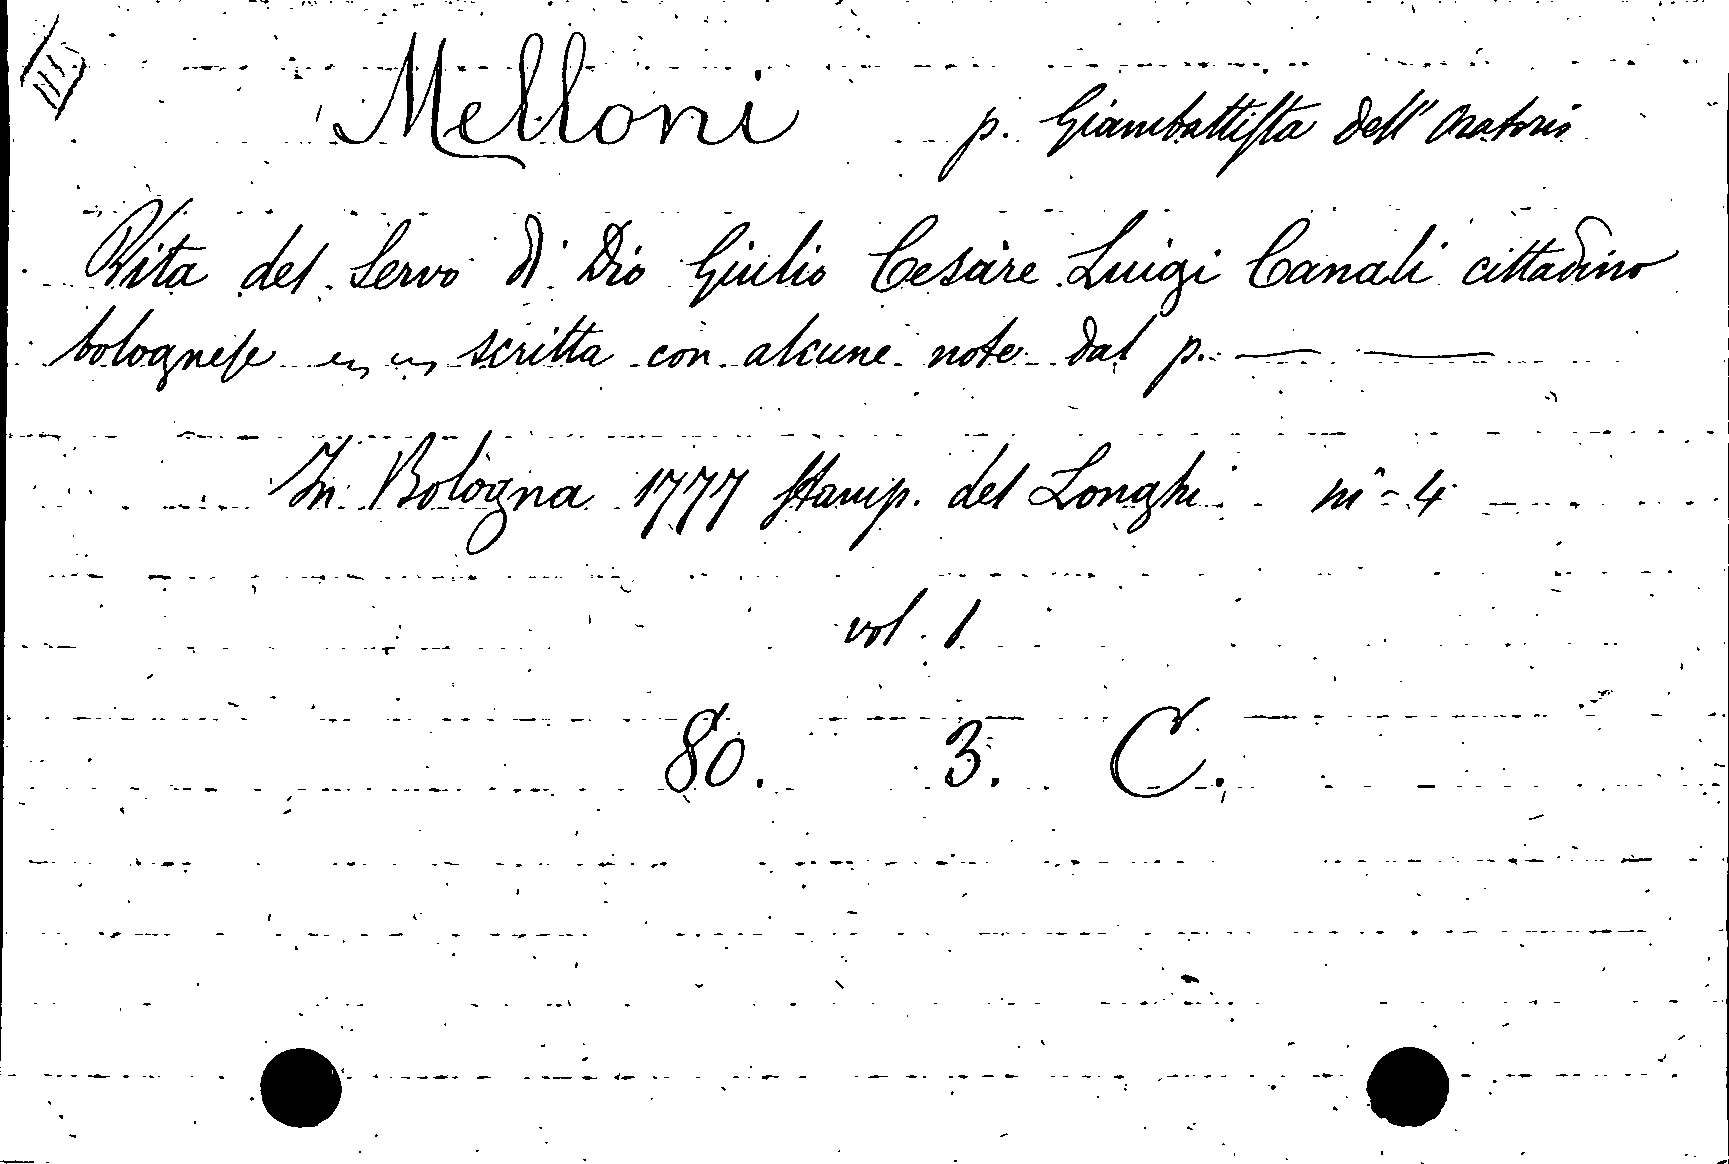 Melloni p. Giambattista dell'Oratorio
Vita del Servo di Dio Giulio Cesare Luigi Canali cittadino
bolognese scritta con alcune note dal p. — —
In Bologna 1777 Stamp. del Longhi in-4
vol. 1
80. 3. C.